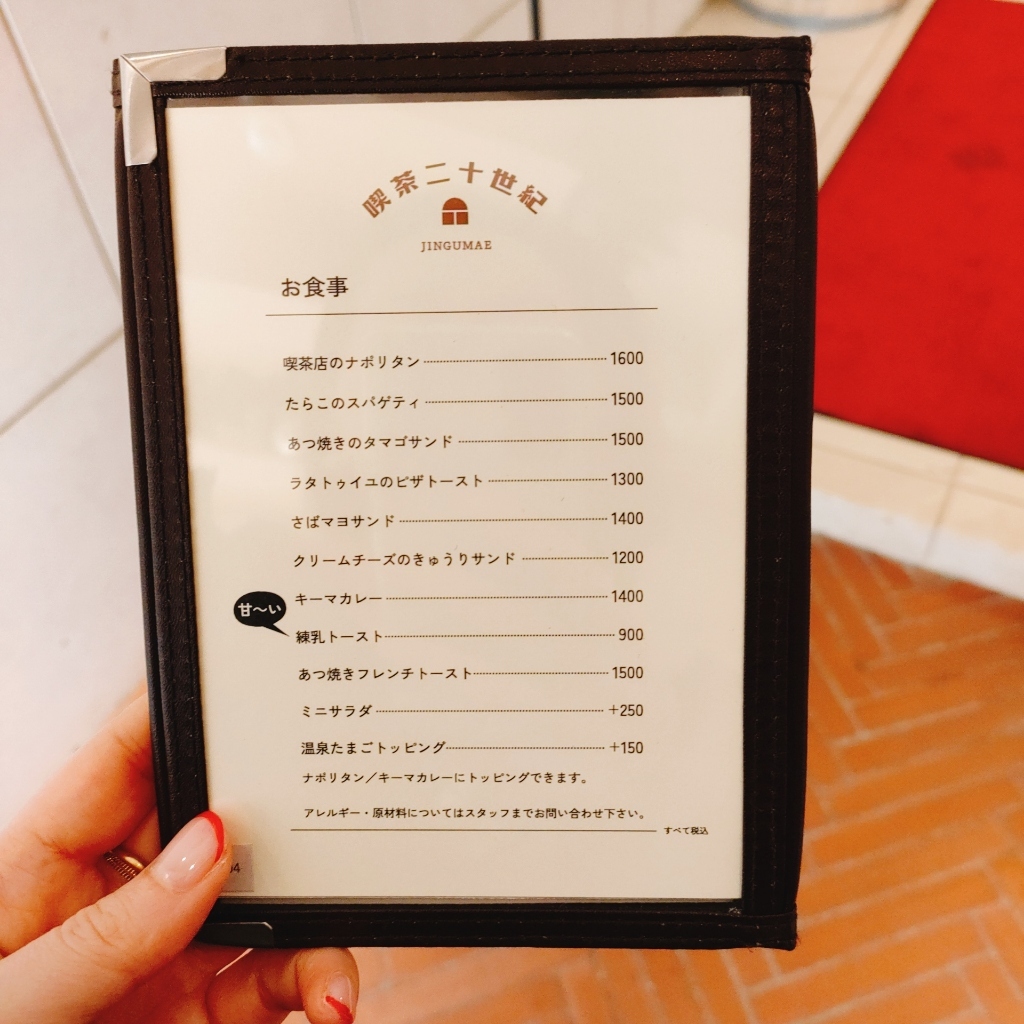 喫茶二十世紀
JINGUMAE
お食事
喫茶店のナポリタン 1600
たらこのスパゲティ 1500
あつ焼きのタマゴサンド 1500
ラタトゥイユのピザトースト 1300
さばマヨサンド 1400
クリームチーズのきゅうりサンド 1200
キーマカレー 1400
甘〜い
練乳トースト 900
あつ焼きフレンチトースト 1500
ミニサラダ +250
温泉たまごトッピング +150
ナポリタン／キーマカレーにトッピングできます。
アレルギー・原材料についてはスタッフまでお問い合わせ下さい。
すべて税込